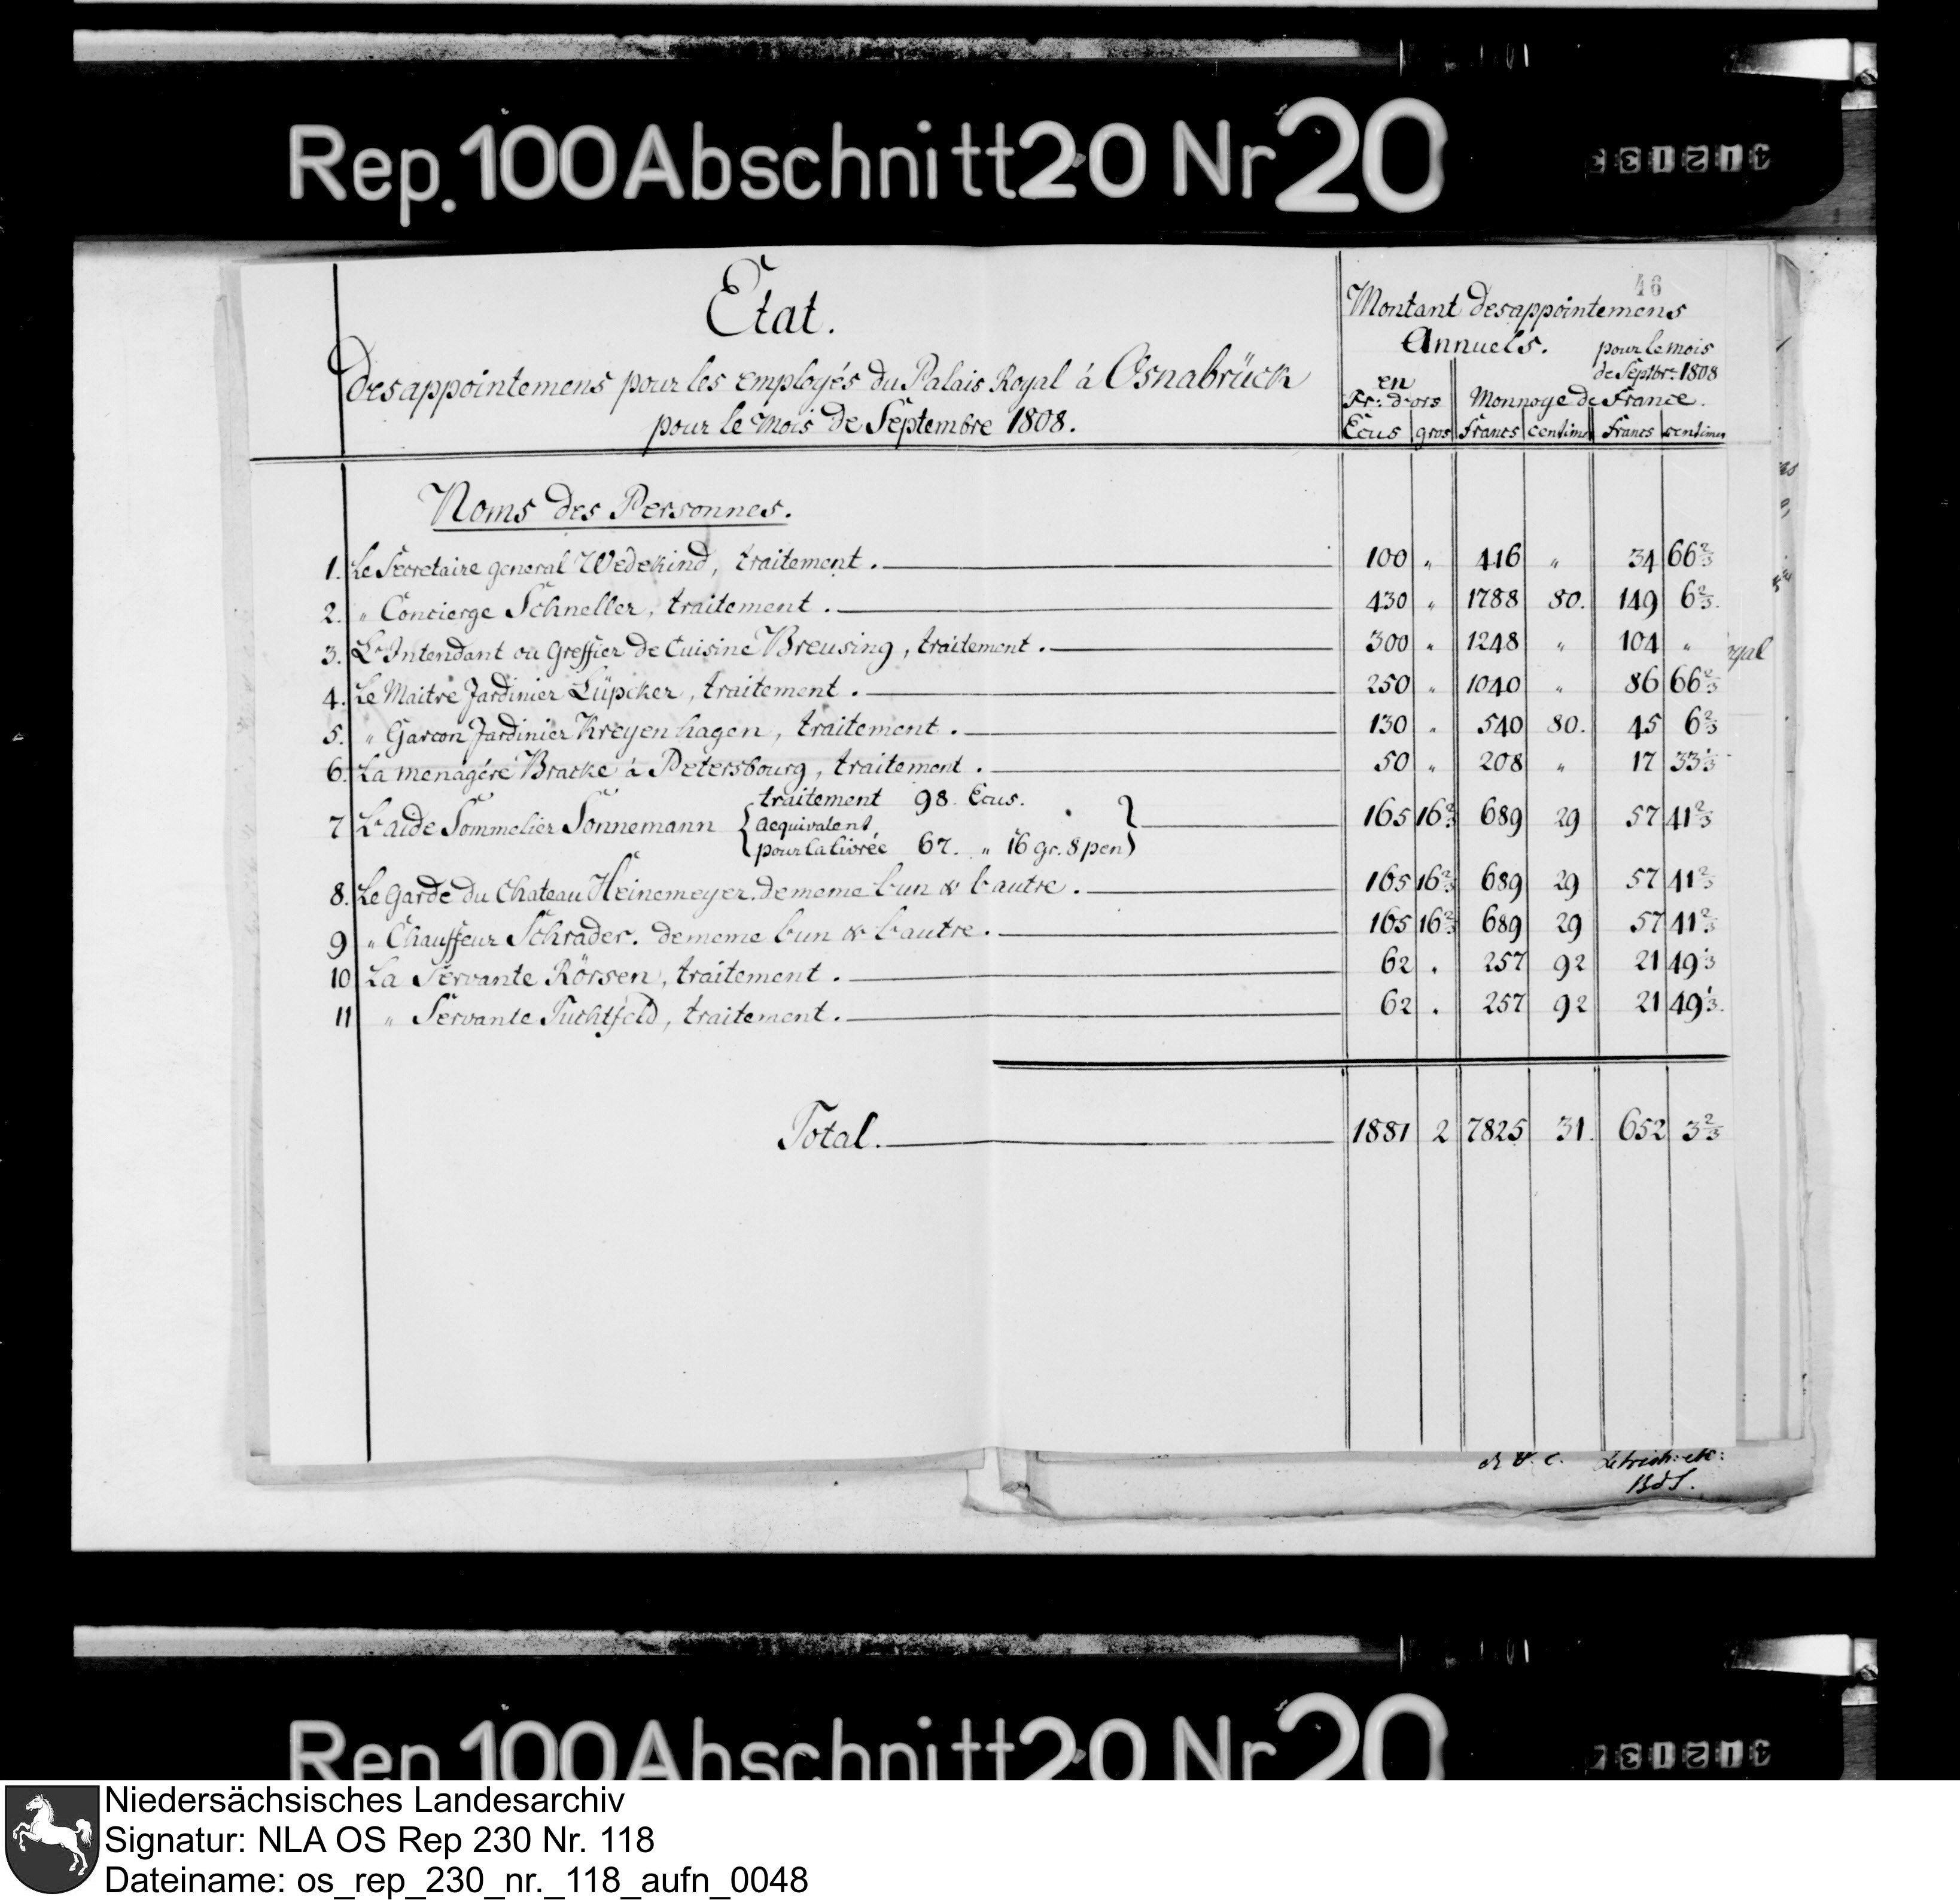 Rep. 100 Abschnitt 20 Nr 20
46
Etat.
des appointemens pour les employés du Palais Royal à Osnabrück
pour le mois de Septembre 1808.
Montant des appointemens
Annuels. pour le mois
de Septbr. 1808
en
Fr: d'ors Monnoye de France.
Ecus gros francs centimes francs centimes
Noms des Personnes.
1. Le Secretaire general Wedekind, traitement. 100 " 416 " 34 66 2/3
2. " Concierge Schneller, traitement. 430 " 1788 80. 149 6 2/3.
3. L'Intendant ou Greffier de Cuisine Breusing, traitement. 300 " 1248 " 104 "
4. Le Maitre Jardinier Lüpcker, traitement. 250 " 1040 " 86 66 2/3
5. " Garcon Jardinier Kreyenhagen, traitement. 130 " 540 80. 45 6 2/3
6. La menagéré Bracke à Petersbourg, traitement. 50 " 208 " 17 33 1/3
traitement 98. Ecus.
7 L'aide Sommelier Sonnemann aequivalent 165 16 2/3 689 29 57 41 2/3
pour la livrée 67. " 16 gr. 8 pen
8. Le Garde du Chateau Heinemeyer. de meme l'un & l'autre. 165 16 2/3 689 29 57 41 2/3
9 " Chauffeur Schrader. de meme l'un & l'autre. 165 16 2/3 689 29 57 41 2/3
10 La Servante Rörsen, traitement. 62 . 257 92 21 49 1/3
11 " Servante Tuchtfeld, traitement. 62 . 257 92 21 49 1/3.
Total. 1881 2 7825 31. 652 3 2/3
Rep. 100 Abschnitt 20 Nr 20
Niedersächsisches Landesarchiv
Signatur: NLA OS Rep 230 Nr. 118
Dateiname: os_rep_230_nr._118_aufn_0048